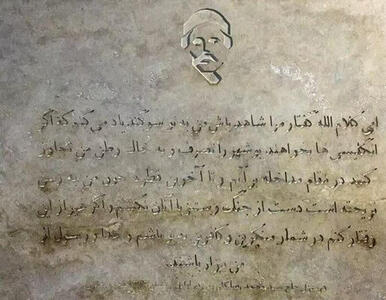 ای کلام الله گفتار مرا شاهد باش من به تو سوگند یاد می کنم که اگر
انگلیسی ها بخواهند بوشهر را تصرف و به خاک وطن من تجاوز
کنند در مقام مدافعه برآیم و تا آخرین قطره خون من به زمین
نریخته است دست از جنگ و ستیز با آنان نکشم و اگر غیر از این
رفتار کنم در شمار منکرین و کافرین به تو باشم و خدا و رسول از
من بیزار باشند